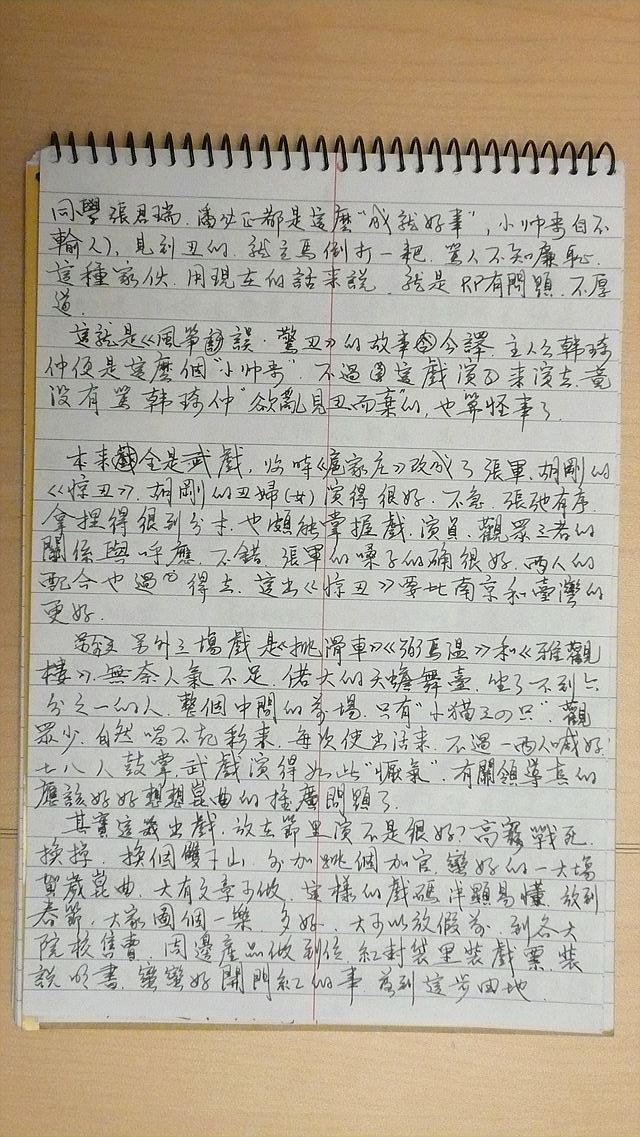 同學張君瑞、潘必正都是這麼"成就好事",小帅哥自不
輸人),見到丑的,就立馬倒打一耙,罵人不知廉恥.
這種家伙,用現在的話来說,就是RP有問題,不厚
道.
這就是《風箏誤·驚丑》的故事今譯.主人公韩琦
仲便是這麼個"小帅哥".不過這戲演了来演去,竟
没有罵韩琦仲"欲亂見丑而棄"的,也算怪事了.
本来全是武戲,临時《扈家庄》改成了張軍、胡剛的
《惊丑》.胡剛的丑婦(女)演得很好.不急,張弛有序.
拿捏得很到分寸.也頗能掌握戲、演員、觀眾三者的
關係與呼應.不錯.張軍的嗓子的确很好.两人的
配合也過得去.這出《惊丑》要比南京和臺灣的
更好.
另外三場戲是《挑滑車》《弼馬温》和《雅觀
樓》.無奈人氣不足,偌大的天蟾舞臺,坐了不到六
分之一的人.整個中間的券場,只有"小猫三四只".觀
眾少,自然喝不起彩来,每次使出活来,不過一两人喊好,
七八人鼓掌.武戲演得如此"慪氣",有關領導真的
應該好好想想崑曲的推廣問題了.
其實這幾出戲,放在節里演不是很好?高寵戰死,
换掉,换個雙下山,外加跳個加官,蠻好的一大場
賀歲崑曲,大有文章可做.這樣的戲碼淺顯易懂,放到
春節,大家圖個一樂,多好.大可以放假前,到各大
院校售票,周邊產品做到位,紅封袋里装戲票、装
說明書,蠻蠻好開門紅的事,為到這步田地.